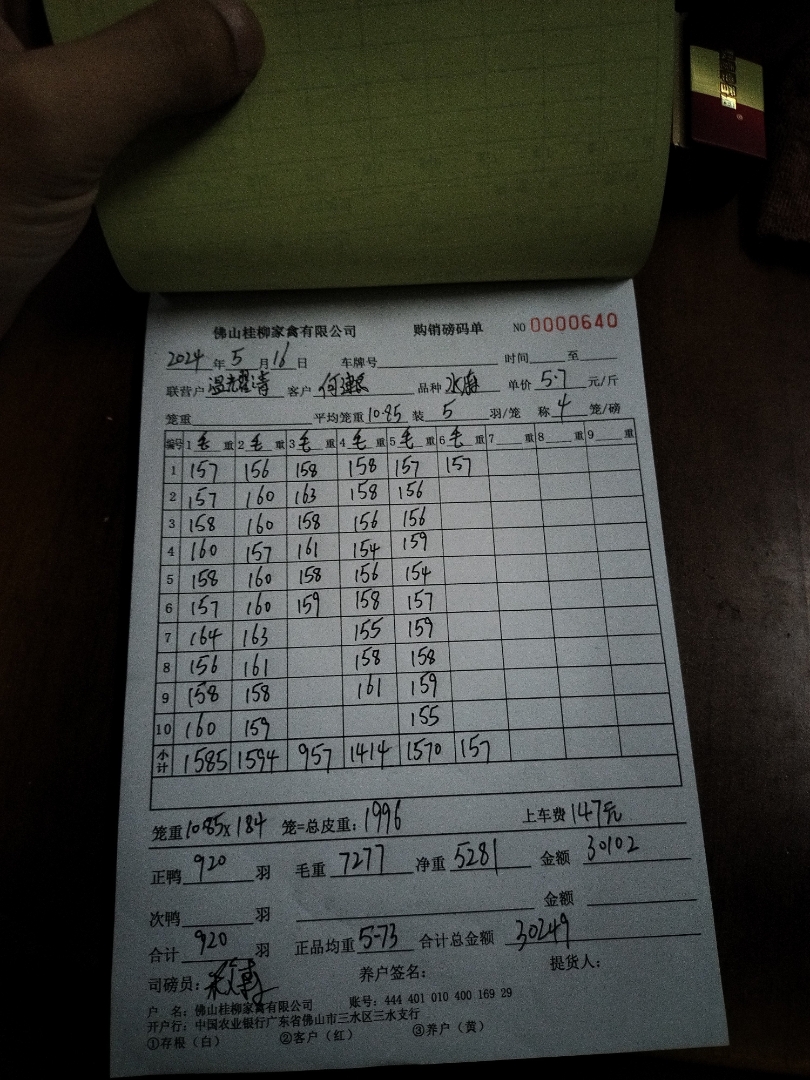 佛山桂柳家禽有限公司 购销磅码单 NO 0000640
2024年5月16日 车牌号 时间 至
联营户 温耀涛 客户 何 品种 水麻 单价 5.7 元/斤
笼重 平均笼重 10.85 装 5 羽/笼 称 4 笼/磅
编号 1 毛 重 2 毛 重 3 毛 重 4 毛 重 5 毛 重 6 毛 重 7 重 8 重 9 重
1 157 156 158 158 157 157
2 157 160 163 158 156
3 158 160 158 156 156
4 160 157 161 154 159
5 158 160 158 156 154
6 157 160 159 158 157
7 164 163 155 159
8 156 161 158 158
9 158 158 161 159
10 160 159 155
小计 1585 1594 957 1414 1570 157
笼重 10.85×184 笼=总皮重: 1996 上车费 147元
正鸭 920 羽 毛重 7277 净重 5281 金额 30102
次鸭 羽 金额
合计 920 羽 正品均重 5-73 合计总金额 30249
司磅员: 养户签名: 提货人:
户 名: 佛山桂柳家禽有限公司 账号: 444 401 010 400 169 29
开户行: 中国农业银行广东省佛山市三水区三水支行
①存根（白） ②客户（红） ③养户（黄）